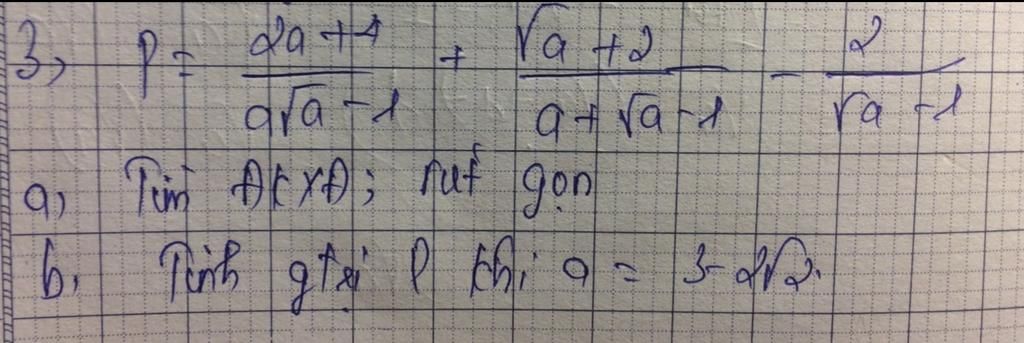 3, P = \frac{2a+4}{a\sqrt{a}-1} + \frac{\sqrt{a}+2}{a+\sqrt{a}-1} - \frac{2}{\sqrt{a}-1}
a, Tìm ĐKXĐ; rút gọn
b, Tính gtrị P khi a = 3-2√2.